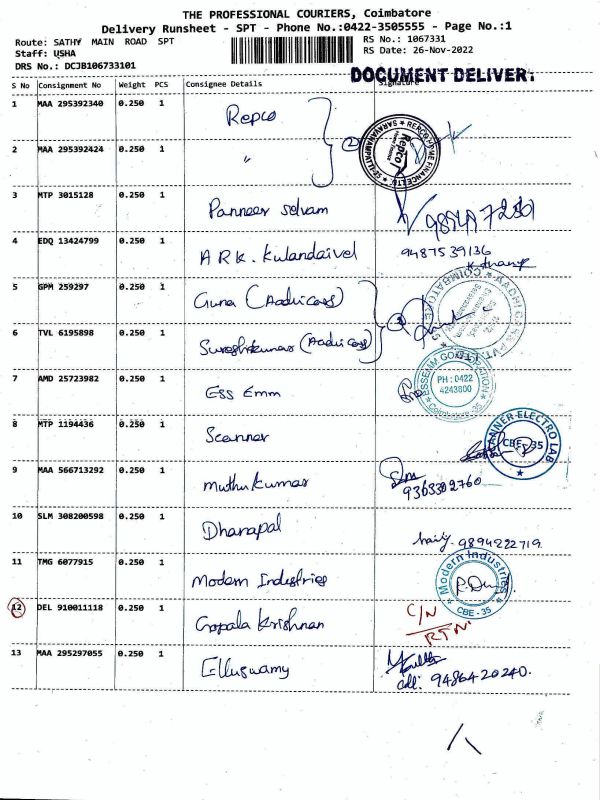 THE PROFESSIONAL COURIERS, Coimbatore
Delivery Runsheet - SPT - Phone No.:0422-3505555 - Page No.:1
Route: SATHY MAIN ROAD SPT
RS No.: 1067331
Staff: USHA
RS Date: 26-Nov-2022
DRS No.: DCJB106733101
DOCUMENT DELIVER
S No Consignment No Weight PCS Consignee Details Signature
1 MAA 295392340 0.250 1 Repco
2 MAA 295392424 0.250 1 "
②
REPCO HOME FINANCE LTD
Repco
SARAVANAMPATTI
3 MTP 3015128 0.250 1 Panneer selvam
4 EDQ 13424799 0.250 1 ARK. Kulandaivel 9487539136
5 GPM 259297 0.250 1 Guna (Aadricass)
6 TVL 6195898 0.250 1 Sureshkumar (Aadricass)
COIMBATORE
7 AMD 25723982 0.250 1 Ess Emm
ESSEEAM CORPORATION
PH : 0422
4243800
Coimbatore-35
8 MTP 1194436 0.250 1 Scanner
SCANNER ELECTRO LAB
CBE - 35
9 MAA 566713292 0.250 1 Muthukumar 9363302760
10 SLM 308200598 0.250 1 Dhanapal 9894222719
11 TMG 6077915 0.250 1 Modern Industries
Modern Industries
CBE - 35
12 DEL 910011118 0.250 1 Gopala Krishnan C/N
RTN
13 MAA 295297055 0.250 1 Elluswamy
Cell: 9486420240.